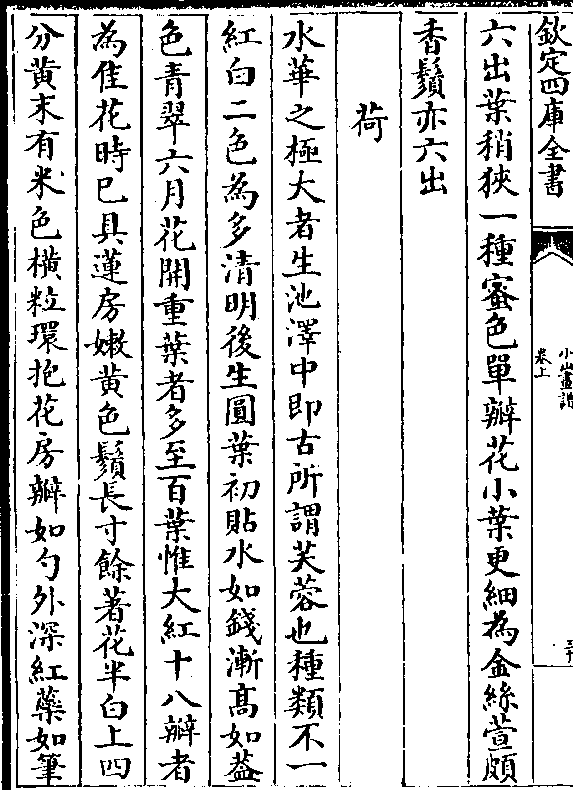 欽定四庫全書
小山畫譜
卷上
三十
六出葉稍狹一種蜜色單瓣花小葉更細為金絲萱頗
香鬚亦六出
荷
水華之極大者生池澤中即古所謂芙蓉也種類不一
紅白二色為多清明後生圓葉初貼水如錢漸高如蓋
色青翠六月花開重葉者多至百葉惟大紅十八瓣者
為佳花時已具蓮房嫩黄色鬚長寸餘著花半白上四
分黄末有米色橫粒環抱花房瓣如勺外深紅蘂如筆